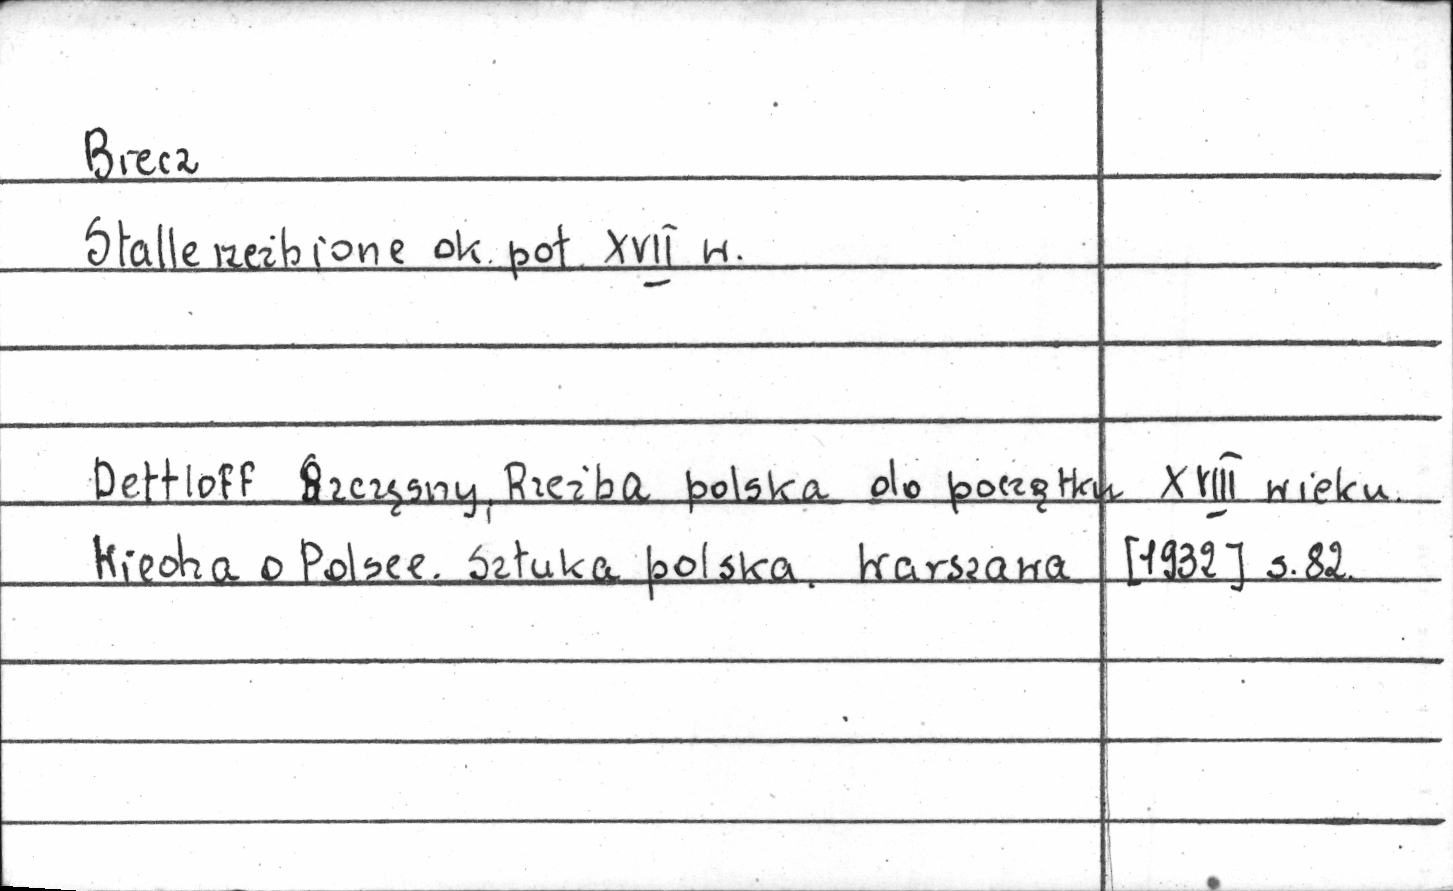 Biecz
Stalle rzeźbione ok. poł. XVII w.
Dettloff Szczęsny, Rzeźba polska do początku XVIII wieku.
Wiedza o Polsce. Sztuka polska. Warszawa [1932] s. 82.